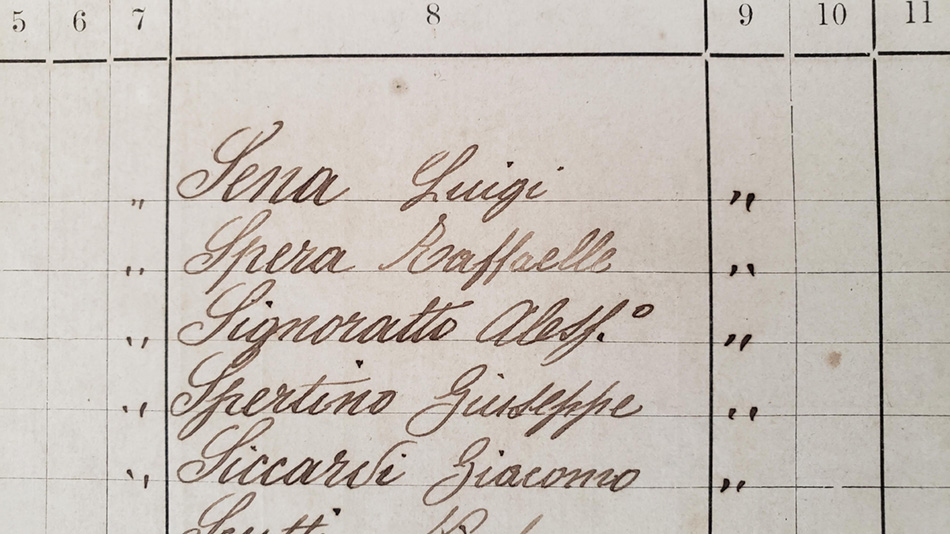 5 6 7 8 9 10 11
" Sena Luigi "
" Spera Raffaelle "
" Signoratto Aless.º "
" Spertino Giuseppe "
" Siccardi Giacomo "